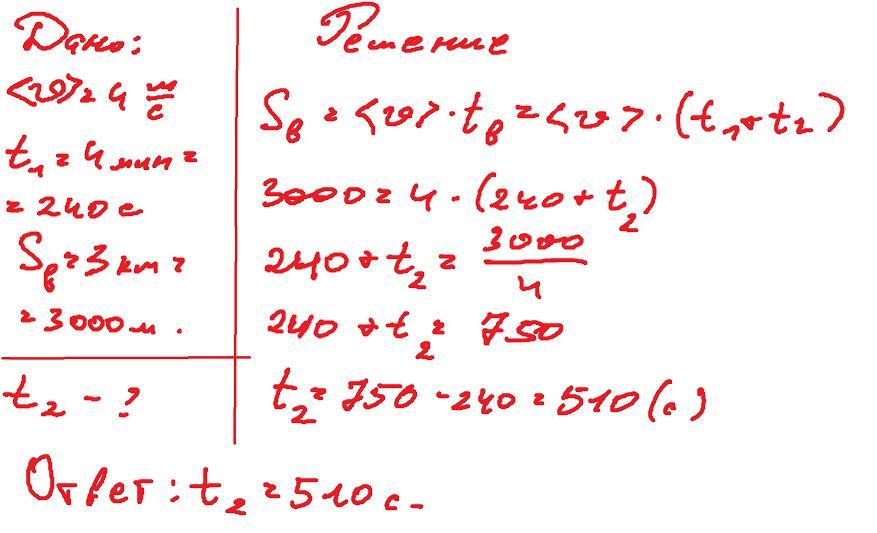 Дано:
<υ> = 4 м/с
t₁ = 4 мин =
= 240 с
Sв = 3 км =
= 3000 м.
t₂ - ?
Решение
Sв = <υ> · tв = <υ> · (t₁ + t₂)
3000 = 4 · (240 + t₂)
240 + t₂ = 3000/4
240 + t₂ = 750
t₂ = 750 - 240 = 510 (с)
Ответ: t₂ = 510 с.